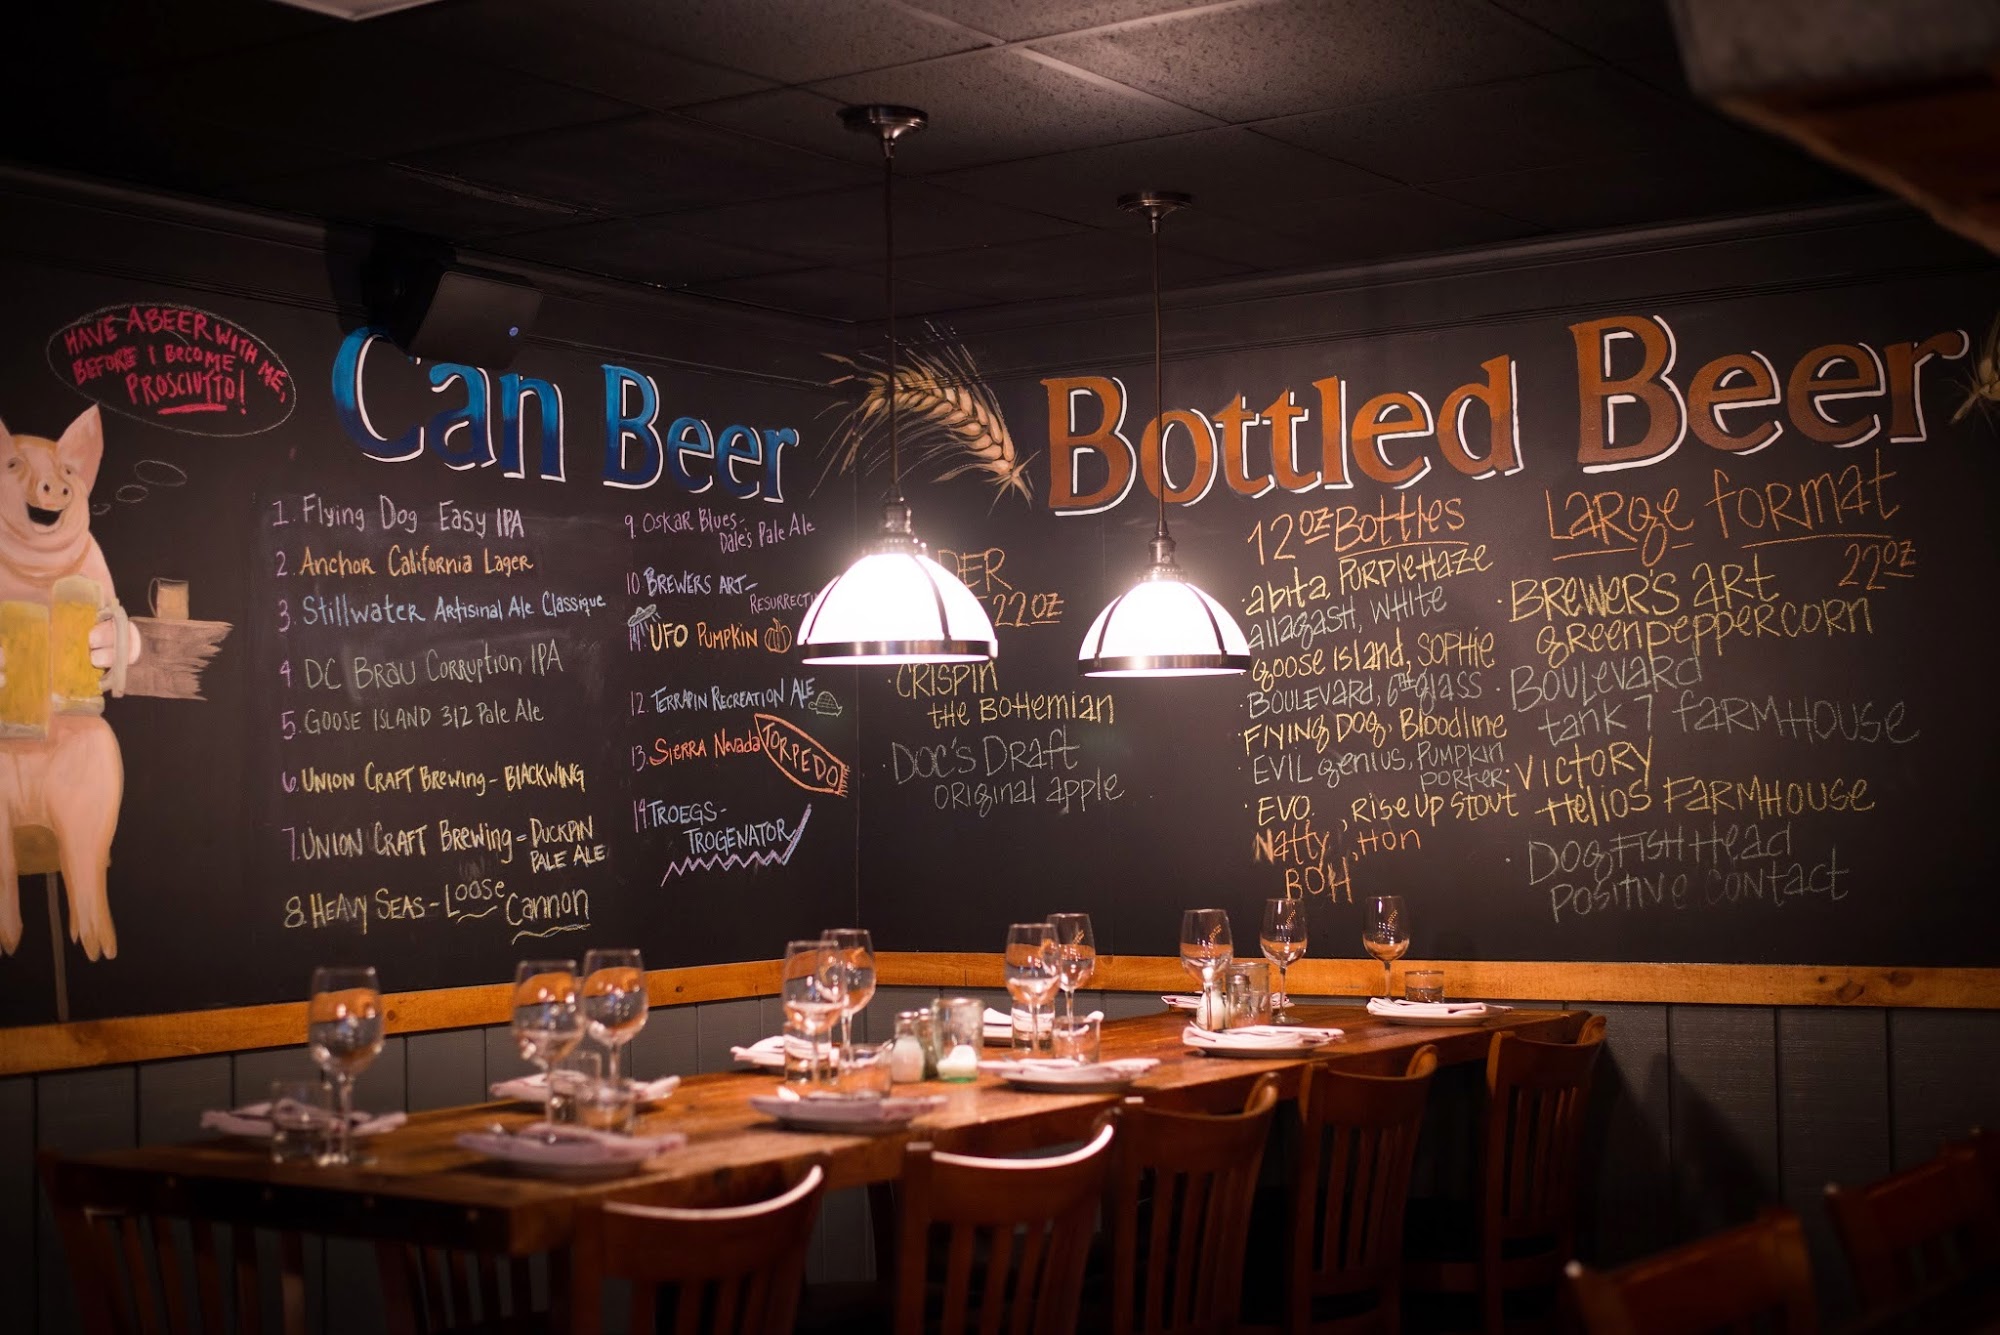 HAVE A BEER WITH ME,
BEFORE I BECOME
PROSCIUTTO!
Can Beer
1. Flying Dog Easy IPA
2. Anchor California Lager
3. Stillwater Artisinal Ale Classique
4 DC Brau Corruption IPA
5. Goose Island 312 Pale Ale
6. Union Craft Brewing - Blackwing
7. Union Craft Brewing - Duckpin
Pale Ale
8. Heavy Seas - Loose
Cannon
9. Oskar Blues -
Dale's Pale Ale
10 Brewers Art -
UFO Pumpkin
12. Terrapin Recreation Ale
13. Sierra Nevada TORPEDO
14. Troegs -
Trogenator
Bottled Beer
22oz
Crispin
the Bohemian
Doc's Draft
original apple
12oz Bottles
abita, Purple Haze
allagash, white
goose island, Sophie
Boulevard, 6th glass
Flying Dog, Bloodline
Evil genius, Pumpkin
porter
Evo. , Rise Up Stout
Natty , Hon
BOH
Large format
22oz
Brewer's Art
green peppercorn
Boulevard
tank 7 farmhouse
Victory
Helios Farmhouse
Dog Fish Head
Positive contact